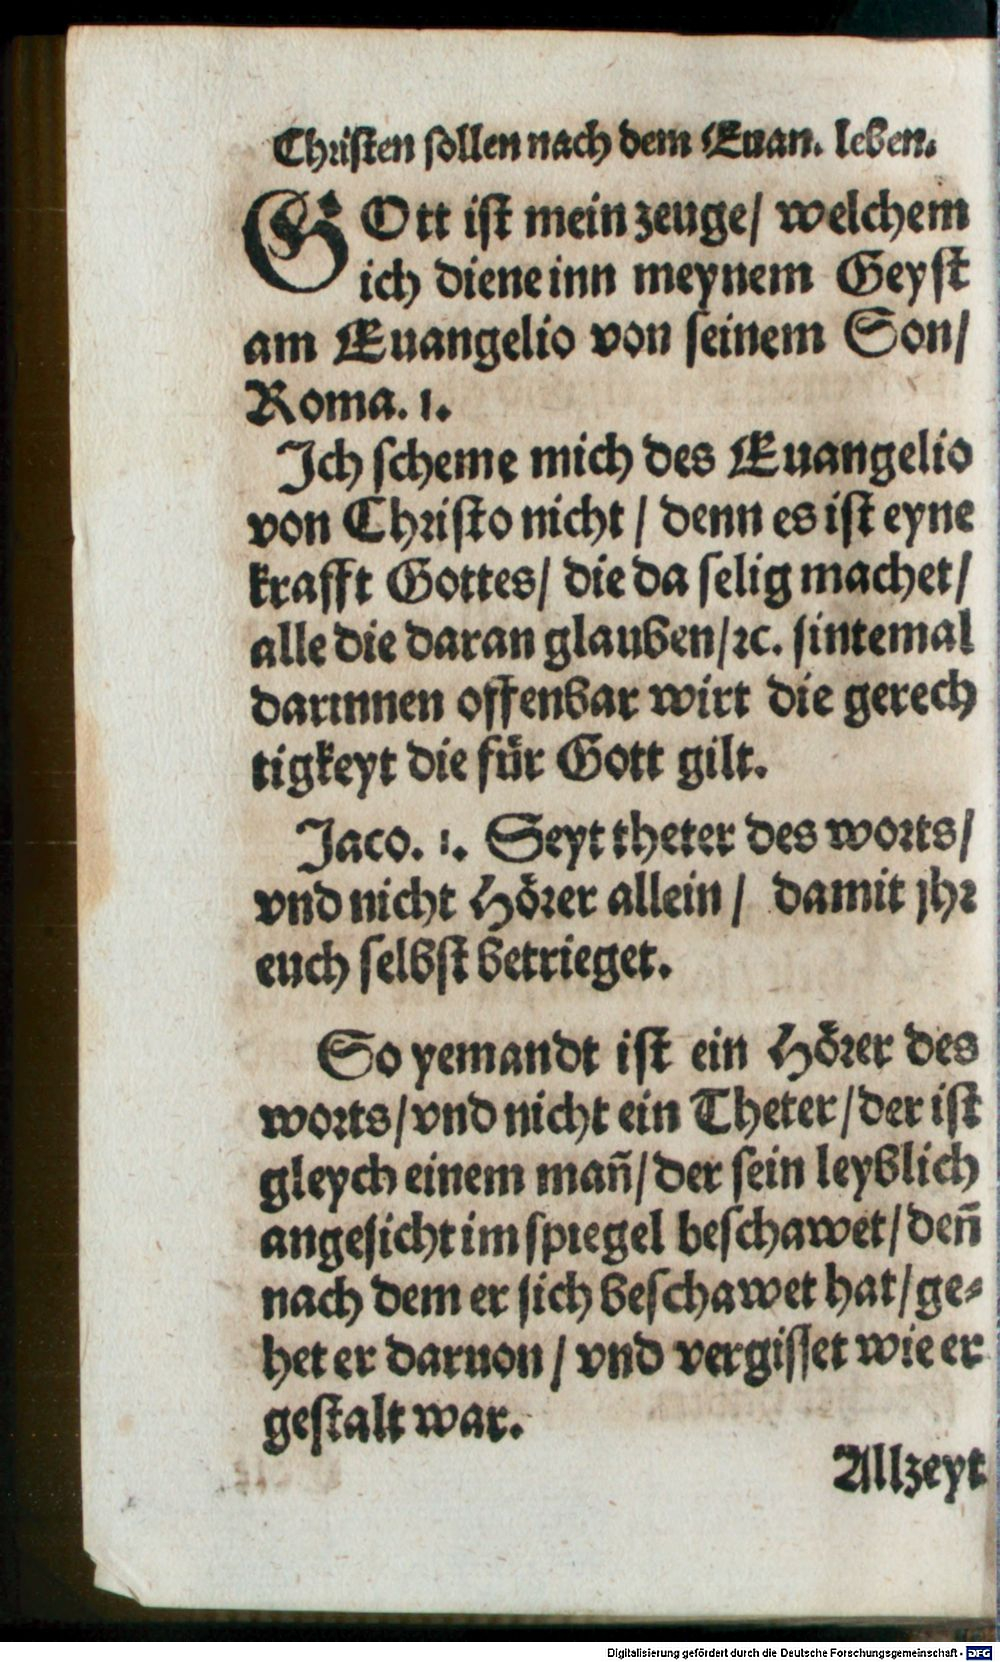 Christen sollen nach dem Euan. leben.
GOtt ist mein zeuge/ welchem
ich diene inn meynem Geyst
am Euangelio von seinem Son/
Roma. 1.
Jch scheme mich des Euangelio
von Christo nicht / denn es ist eyne
krafft Gottes/ die da selig machet/
alle die daran glauben/ꝛc. sintemal
darinnen offenbar wirt die gerech
tigkeyt die für Gott gilt.
Jaco. 1. Seyt theter des worts/
vnd nicht Hörer allein / damit jhr
euch selbst betrieget.
So yemandt ist ein Hörer des
worts/vnd nicht ein Theter/der ist
gleych einem mañ/der sein leyblich
angesicht im spiegel beschawet/deñ
nach dem er sich beschawet hat/ge⸗
het er daruon / vnd vergisset wie er
gestalt war.
Allzeyt
Digitalisierung gefördert durch die Deutsche Forschungsgemeinschaft - DFG